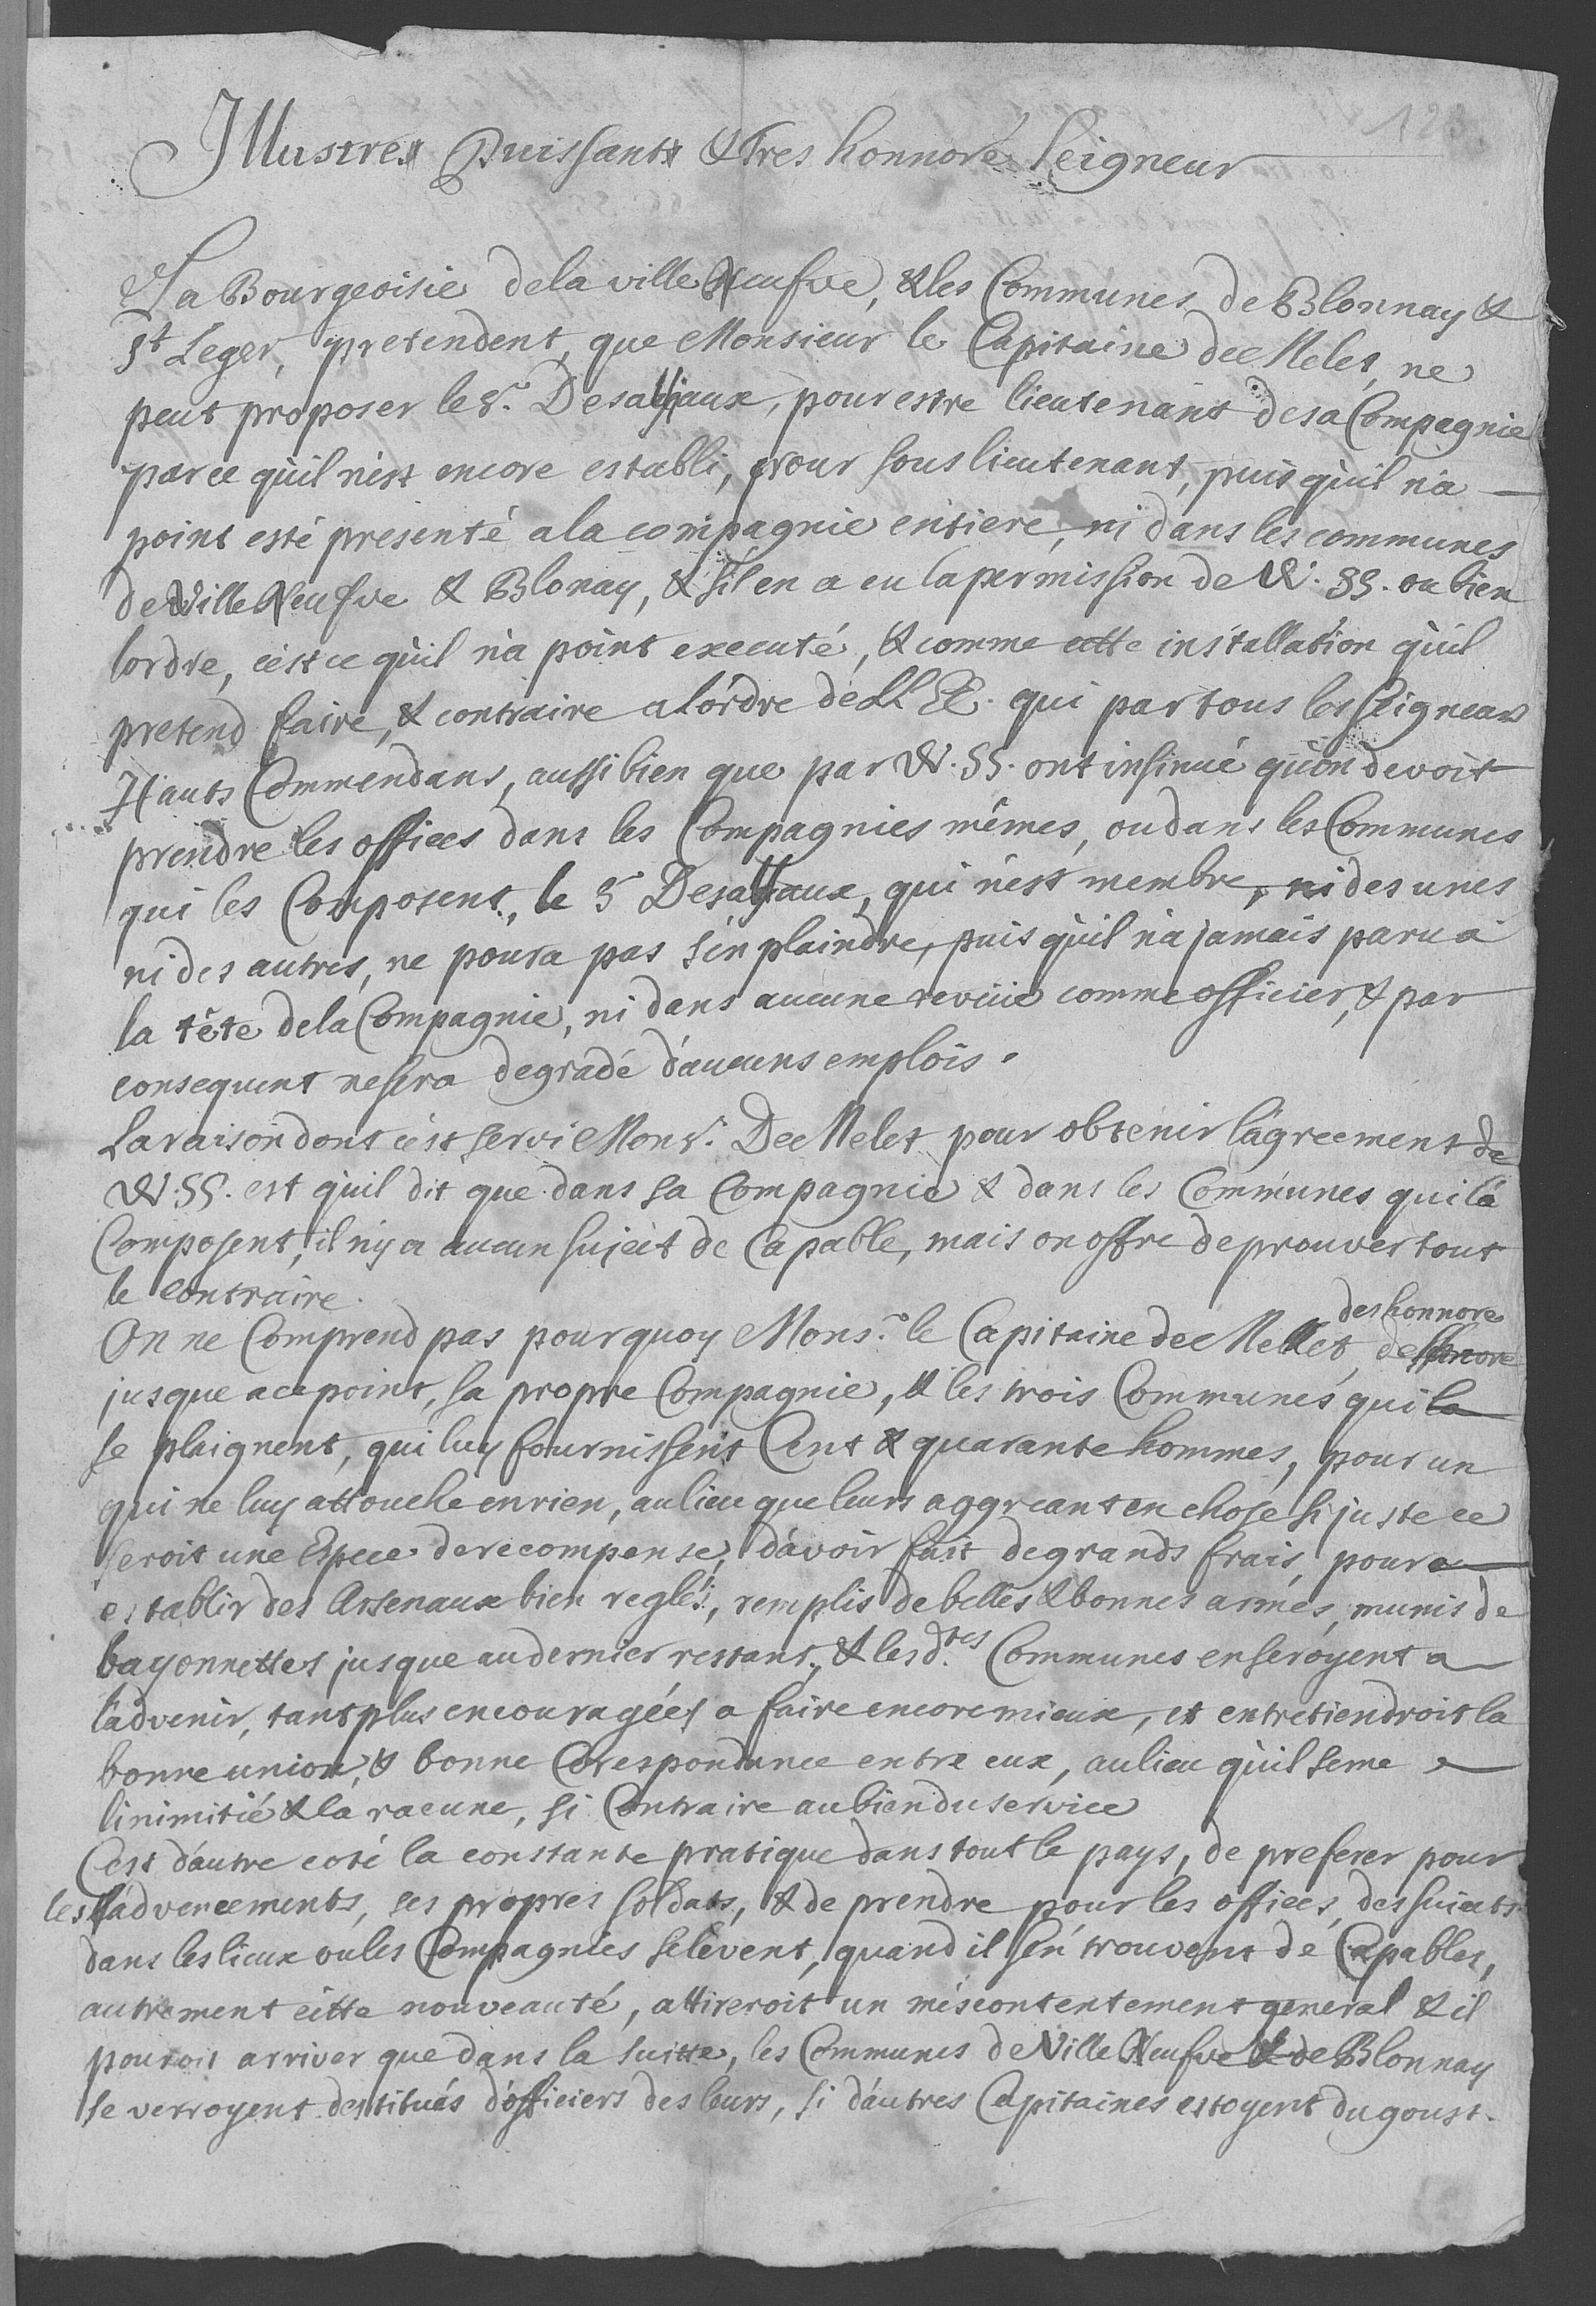 123
Illustre Puissant & Tres honnoré Seigneur
La Bourgeoisie de la ville Neufve, & les Communes de Blonnay &
St Leger, pretendent, que Monsieur le Capitaine de Melet, ne
peut proposer le Sr. Desalliaux, pour estre lieutenant de sa Compagnie
parce qu'il n'est encore establi, pour sous lieutenant, puis qu'il n'a
point esté presenté a la compagnie entiere, ni dans les communes
de Ville Neufve & Blonay, & s'il en a eu la permission de V. SS. ou bien
lordre, c'est ce qu'il n'a point executé, & comme cette installation qu'il
pretend faire, & contraire a l'ordre de LL EE. qui par tous les Seigneurs
Hauts Commendans, aussi bien que par V. SS. ont insinué qu'on devoit
prendre les offices dans les Compagnies mêmes, ou dans les Communes
qui les Composent, le Sr Desalliaux, qui n'est membre, ni des unes
ni des autres, ne poura pas s'en plaindre, puis qu'il n'a jamais paru a
la tête de la Compagnie, ni dans aucune revüe comme officier, & par
consequent ne sera degradé d'aucuns emplois.
La raison dont c'est servi Monsr. De Melet pour obtenir l'agreement de
V. SS. est qu'il dit que dans sa Compagnie & dans les Communes qui la
Composent, il n'y a aucun suject de Capable, mais on offre de prouver tout
le contraire.
On ne Comprend pas pourquoy Monsr. le Capitaine de Mellet, deshonnore
jusque a ce point, sa propre Compagnie, & les trois Communes qui la
se plaignent, qui luy fournissent Cent & quarante hommes, pour un
qui ne luy attouche en rien, au lieu que leurs aggreant en chose si juste ce
seroit une Espece de recompense, d'avoir fait de grands frais, pour
establir des Arsenaux bien reglés, remplis de belles & bonnes armes, munis de
bayonnettes jusque au dernier restant, & les d.tes Communes en seroyent a
l'advenir, tant plus encouragées a faire encore mieux, et entretiendroit la
bonne union, & bonne Corespondance entre eux, au lieu qu'il seme
linimitié & la racune, si Contraire au bien du service
C'est d'autre coté la constante pratique dans tout le pays, de preferer pour
les advencements, ses propres soldats, & de prendre pour les offices, des sujects
dans les lieux ou les Compagnies se levent, quand il s'en trouvent de Capables,
autrement cette nouveauté, attireroit un mêscontentement general & il
pouroit arriver que dans la suitte, les Communes de Ville Neufve & de Blonnay
se verroyent destitués d'officiers des leurs, si d'autres Capitaines estoyent du goust.